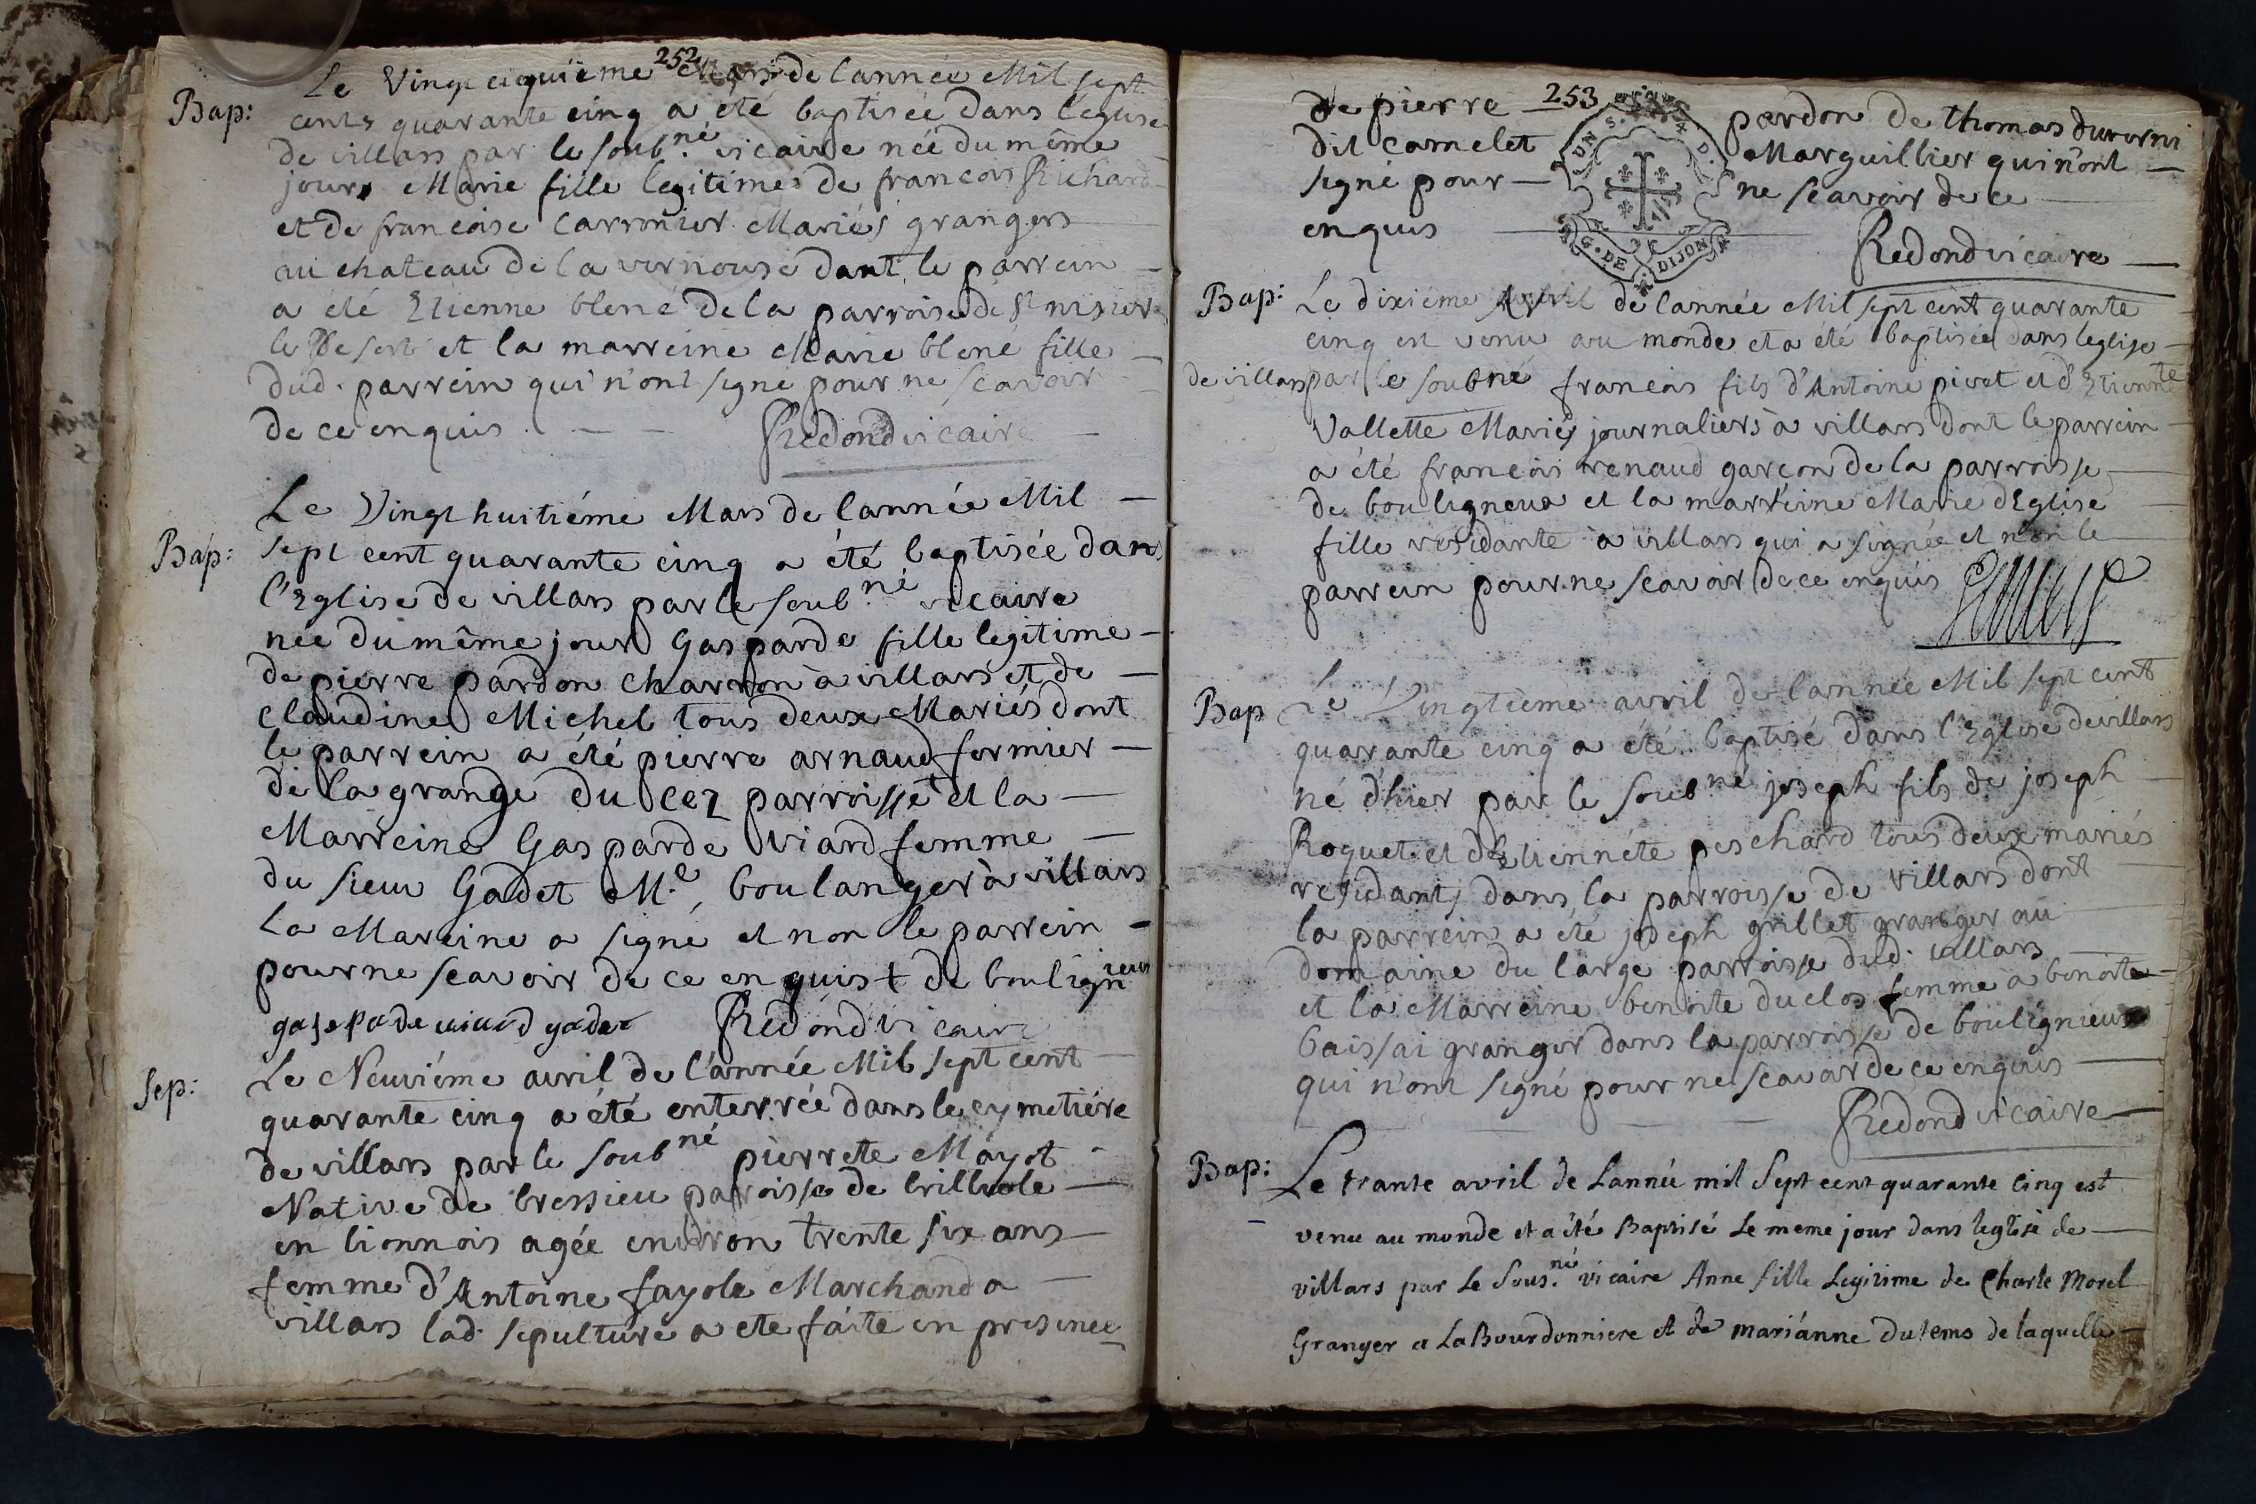 252
Bap:
Le Vingt ciquiéme Mars de l'année Mil sept
cents quarante cinq a été baptisée dans l'eglise
de villars par le soub.né vicaire née du même
jour Marie fille legitime de francois Richard
et de francoise Carronier Mariés grangers
au chateau de la vernouse dont le parrein
a été Etienne blené de la parroisse de St nisier
le Desert et la marreine Marie blené fille
dud. parrein qui n'ont signe pour ne scavoir
de ce enquis Redond vicaire
Bap:
Le Vingt huitiéme Mars de l'année Mil
sept cent quarante cinq a été baptisée dans
l'Eglise de villars par le soub.né vicaire
née du même jour Gasparde fille legitime
de pierre pardon charron à villars et de
claudine Michel tous deux Mariés dont
le parrein a été pierre arnaud fermier
de la grange du parroisse et la
Marreine Gasparde viard femme
du sieur Gadet M.e boulanger à villars
La Mareine a signé et non le parrein
pour ne scavoir de ce enquis + de bouligneux
gaspade viard gadet Redond vicaire
Sep:
Le Neuviéme avril de l'année Mil sept cent
quarante cinq a été enterrée dans le cymetiére
de villars par le soub.né pierrete Mayot
Native de bressieu parroisse de
en lionnois agée environ trente six ans
femme d'Antoine fayole Marchand a
villars lad. sepulture a ete faite en presence
253
de pierre pardon de thomas
dit camelet Marguillier qui n'ont
signé pour ne scavoir de ce
enquis
G. DE DIJON
Redond vicaire
Bap:
Le dixiéme Avril de l'année Mil sept cent quarante
cinq est venu au monde et a été baptisée dans leglise
de villars par le soubné francois fils d'Antoine pivet et d'Etiennte
Vallette Mariés journaliers à villars dont le parrein
a été francois renaud garcon de la parroisse
de bouligneux et la marreine Marie dEglise
fille residante à villars qui a signée et non le
parrein pour ne scavoir de ce enquis
Bap
Le Vingtiéme avril de l'année Mil sept cent
quarante cinq a été baptisé dans l'Eglise de villars
né d'hier par le soub.né joseph fils de joseph
Roquet et d'Etiennéte peschard tous deux mariés
residants dans la parroisse de villars dont
le parrein a été joseph grillet granger au
domaine du large parroisse dud. villars
et la Marreine benoite duclos femme a benoite
baissai granger dans la parroisse de bouligneux
qui n'ont signé pour ne scavoir de ce enquis
Redond vicaire
Bap:
Le trante avril de Lannée mil Sept cent quarante Cinq est
venu au monde et a été Baptisé Le meme jour dans leglise de
villars par Le Sous.né vicaire Anne fille Legitime de Charle Morel
Granger a La Bourdonniere et de marianne Dutems de laquelle